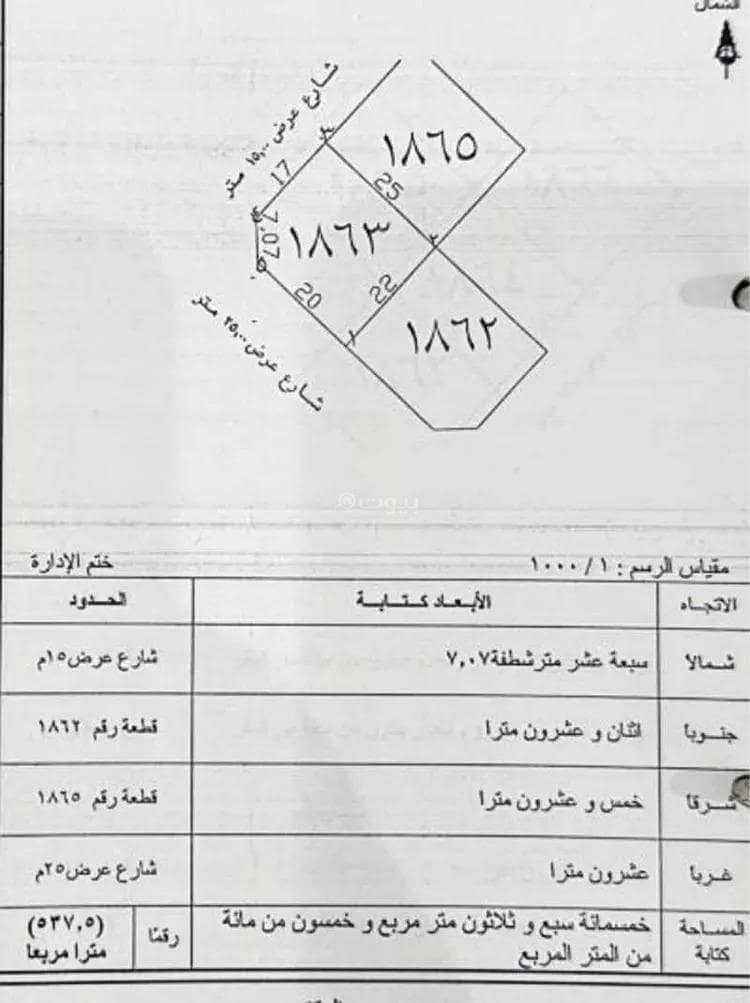 الشمال
شارع عرض ١٥,٠٠ متر
١٨٦٥
17
25
7,07
١٨٦٣
20
22
١٨٦٢
شارع عرض ٢٥,٠٠ متر
بيوت
مقياس الرسم : ١ / ١٠٠٠ ختم الإدارة
الاتجاه الأبعاد كتابة الحدود
شمالا سبعة عشر مترشطفة٧,٠٧ شارع عرض١٥م
جنوبا اثنان و عشرون مترا قطعة رقم ١٨٦٢
شرقا خمس و عشرون مترا قطعة رقم ١٨٦٥
غربا عشرون مترا شارع عرض٢٥م
المساحة كتابة خمسمائة سبع و ثلاثون متر مربع و خمسون من مائة من المتر المربع رقمًا (٥٣٧,٥) مترا مربعا